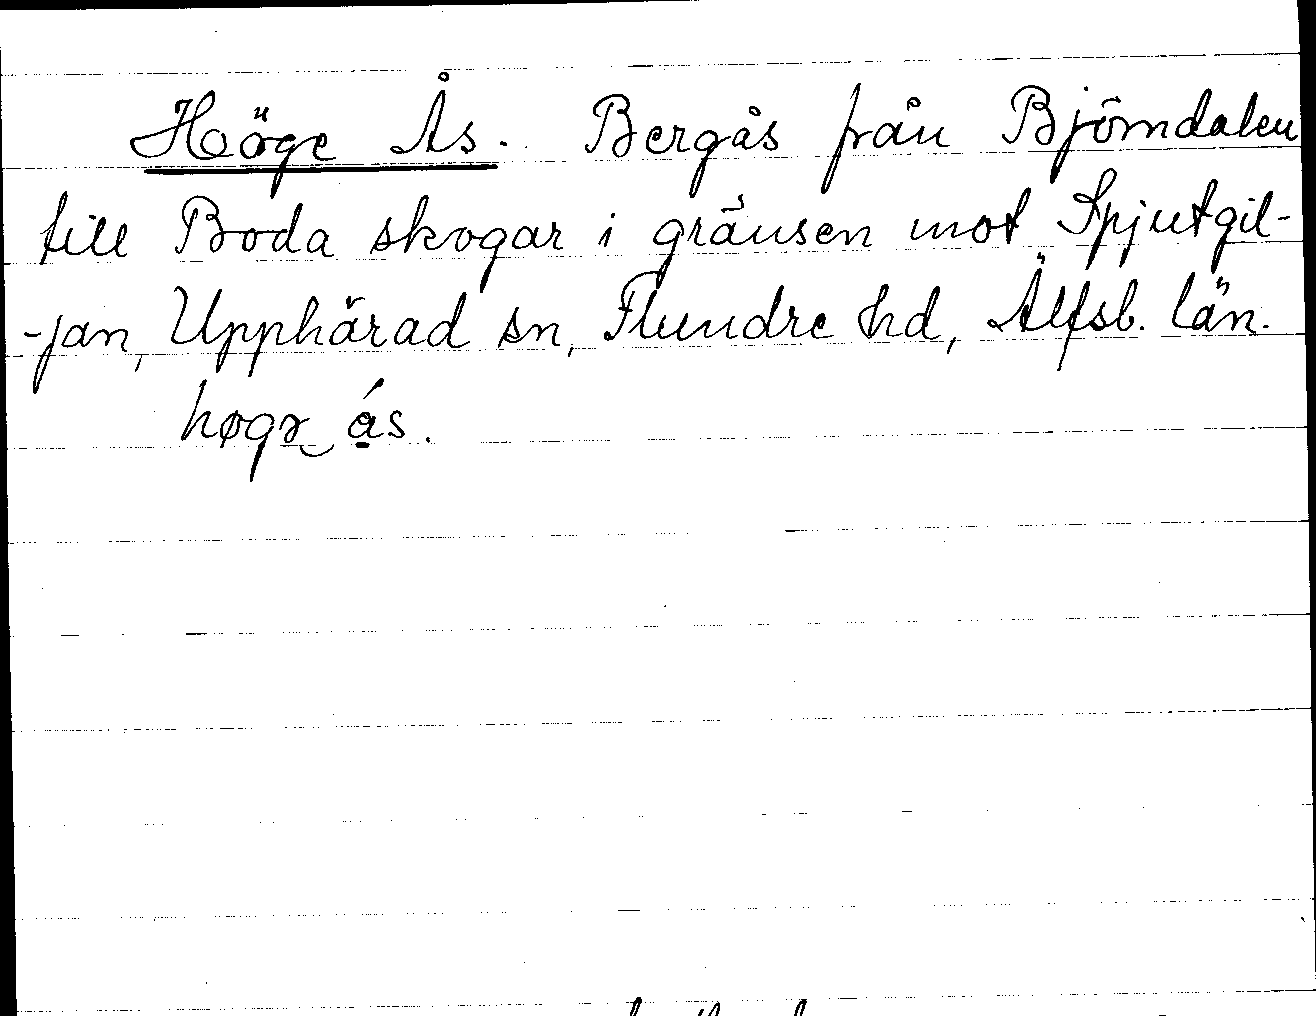 Höge Ås. Bergås från Björndalen
till Boda skogar i gränsen mot Spjutgil-
-jan, Upphärad sn, Flundre hd, Älfsb. län.
høgɤ‿ás.